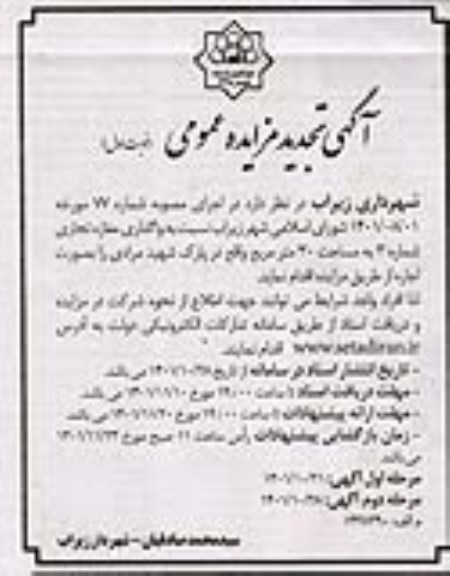 آگهی تجدید مزایده عمومی (نوبت اول)
شهرداری زیراب در نظر دارد در اجرای مصوبه شماره ۷۷ مورخه
شورای اسلامی شهر زیراب نسبت به واگذاری مغازه تجاری
شماره ۳ به مساحت ۲۰ متر مربع واقع در پارک شهید مرادی را بصورت
اجاره از طریق مزایده اقدام نماید.
لذا افراد واجد شرایط می توانند جهت اطلاع از نحوه شرکت در مزایده
و دریافت اسناد از طریق سامانه تدارکات الکترونیکی دولت به آدرس
www.setadiran.ir اقدام نمایند.
- تاریخ انتشار اسناد در سامانه از تاریخ ۱۴۰۱/۱۰/۲۸ می باشد.
- مهلت دریافت اسناد تا ساعت ۱۹:۰۰ مورخ ۱۴۰۱/۱۱/۱۰ می باشد.
- مهلت ارائه پیشنهادات تا ساعت ۱۹:۰۰ مورخ ۱۴۰۱/۱۱/۲۰ می باشد.
- زمان بازگشایی پیشنهادات رأس ساعت ۱۱ صبح مورخ ۱۴۰۱/۱۱/۲۳
می باشد.
مرحله اول آگهی: ۱۴۰۱/۱۰/۲۱
مرحله دوم آگهی: ۱۴۰۱/۱۰/۲۸
م الف:
سیدمحمد صادقیان - شهردار زیراب